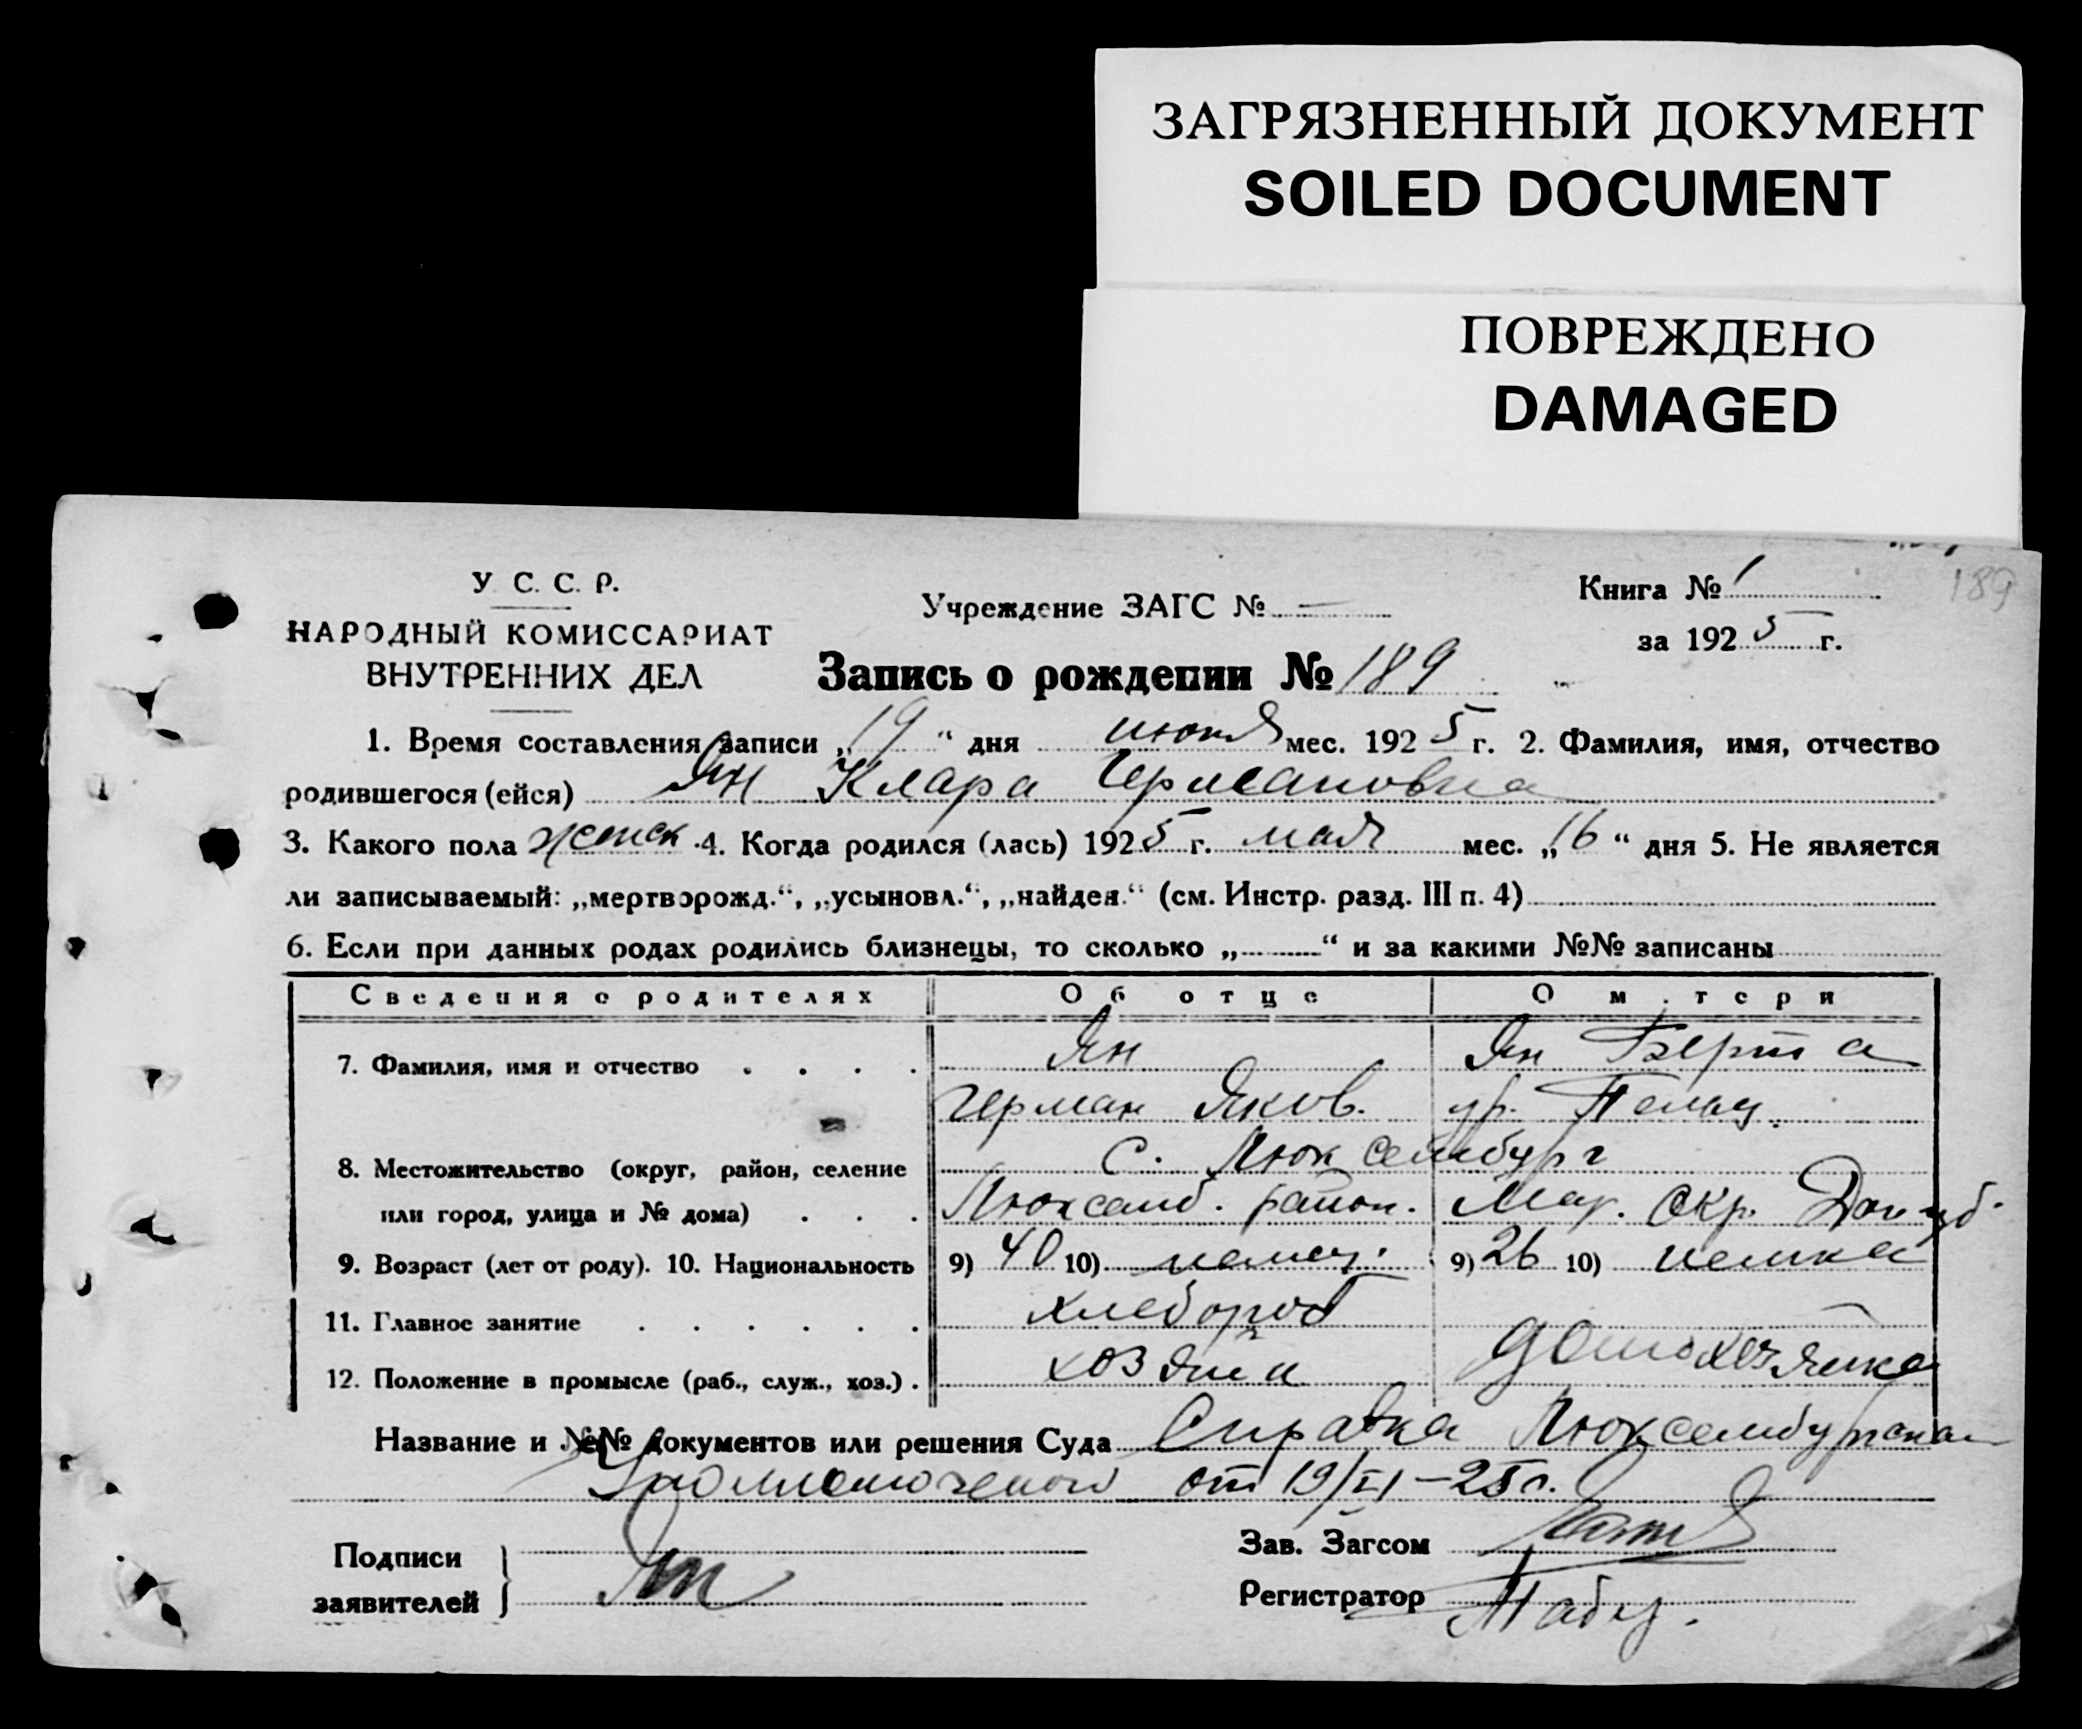 ЗАГРЯЗНЕННЫЙ ДОКУМЕНТ
SOILED DOCUMENT
ПОВРЕЖДЕНО
DAMAGED
У. С. С. Р.
НАРОДНЫЙ КОМИССАРИАТ
ВНУТРЕННИХ ДЕЛ
Учреждение ЗАГС № —
Книга № 1
189
за 1925 г.
Запись о рождении № 189
1. Время составления записи „19“ дня июня мес. 1925 г. 2. Фамилия, имя, отчество
родившегося (ейся) Ян Клара Германовна
3. Какого пола женск. 4. Когда родился (лась) 1925 г. мая мес. „16“ дня 5. Не является
ли записываемый: „мертворожд.“, „усыновл.“, „найден.“ (см. Инстр. разд. III п. 4)
6. Если при данных родах родились близнецы, то сколько „ “ и за какими №№ записаны
Сведения о родителях Об отце О матери
7. Фамилия, имя и отчество Ян Ян Берта
Герман Яков. ур.
8. Местожительство (округ, район, селение с. Люксембург
или город, улица и № дома) Люксемб. район. Мар. окр.
9. Возраст (лет от роду). 10. Национальность 9) 40 10) немец. 9) 26 10) немка
11. Главное занятие хлебороб
12. Положение в промысле (раб., служ., хоз.) хозяин домохозяйка
Название и №№ документов или решения Суда Справка
от 19/VI – 25 г.
Подписи
заявителей Ян
Зав. Загсом
Регистратор